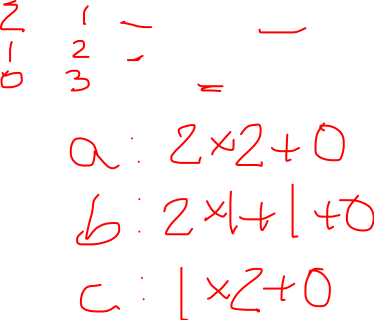 2 1 - -
1 2 -
0 3 =
a: 2×2+0
b: 2×1+1+0
c: 1×2+0